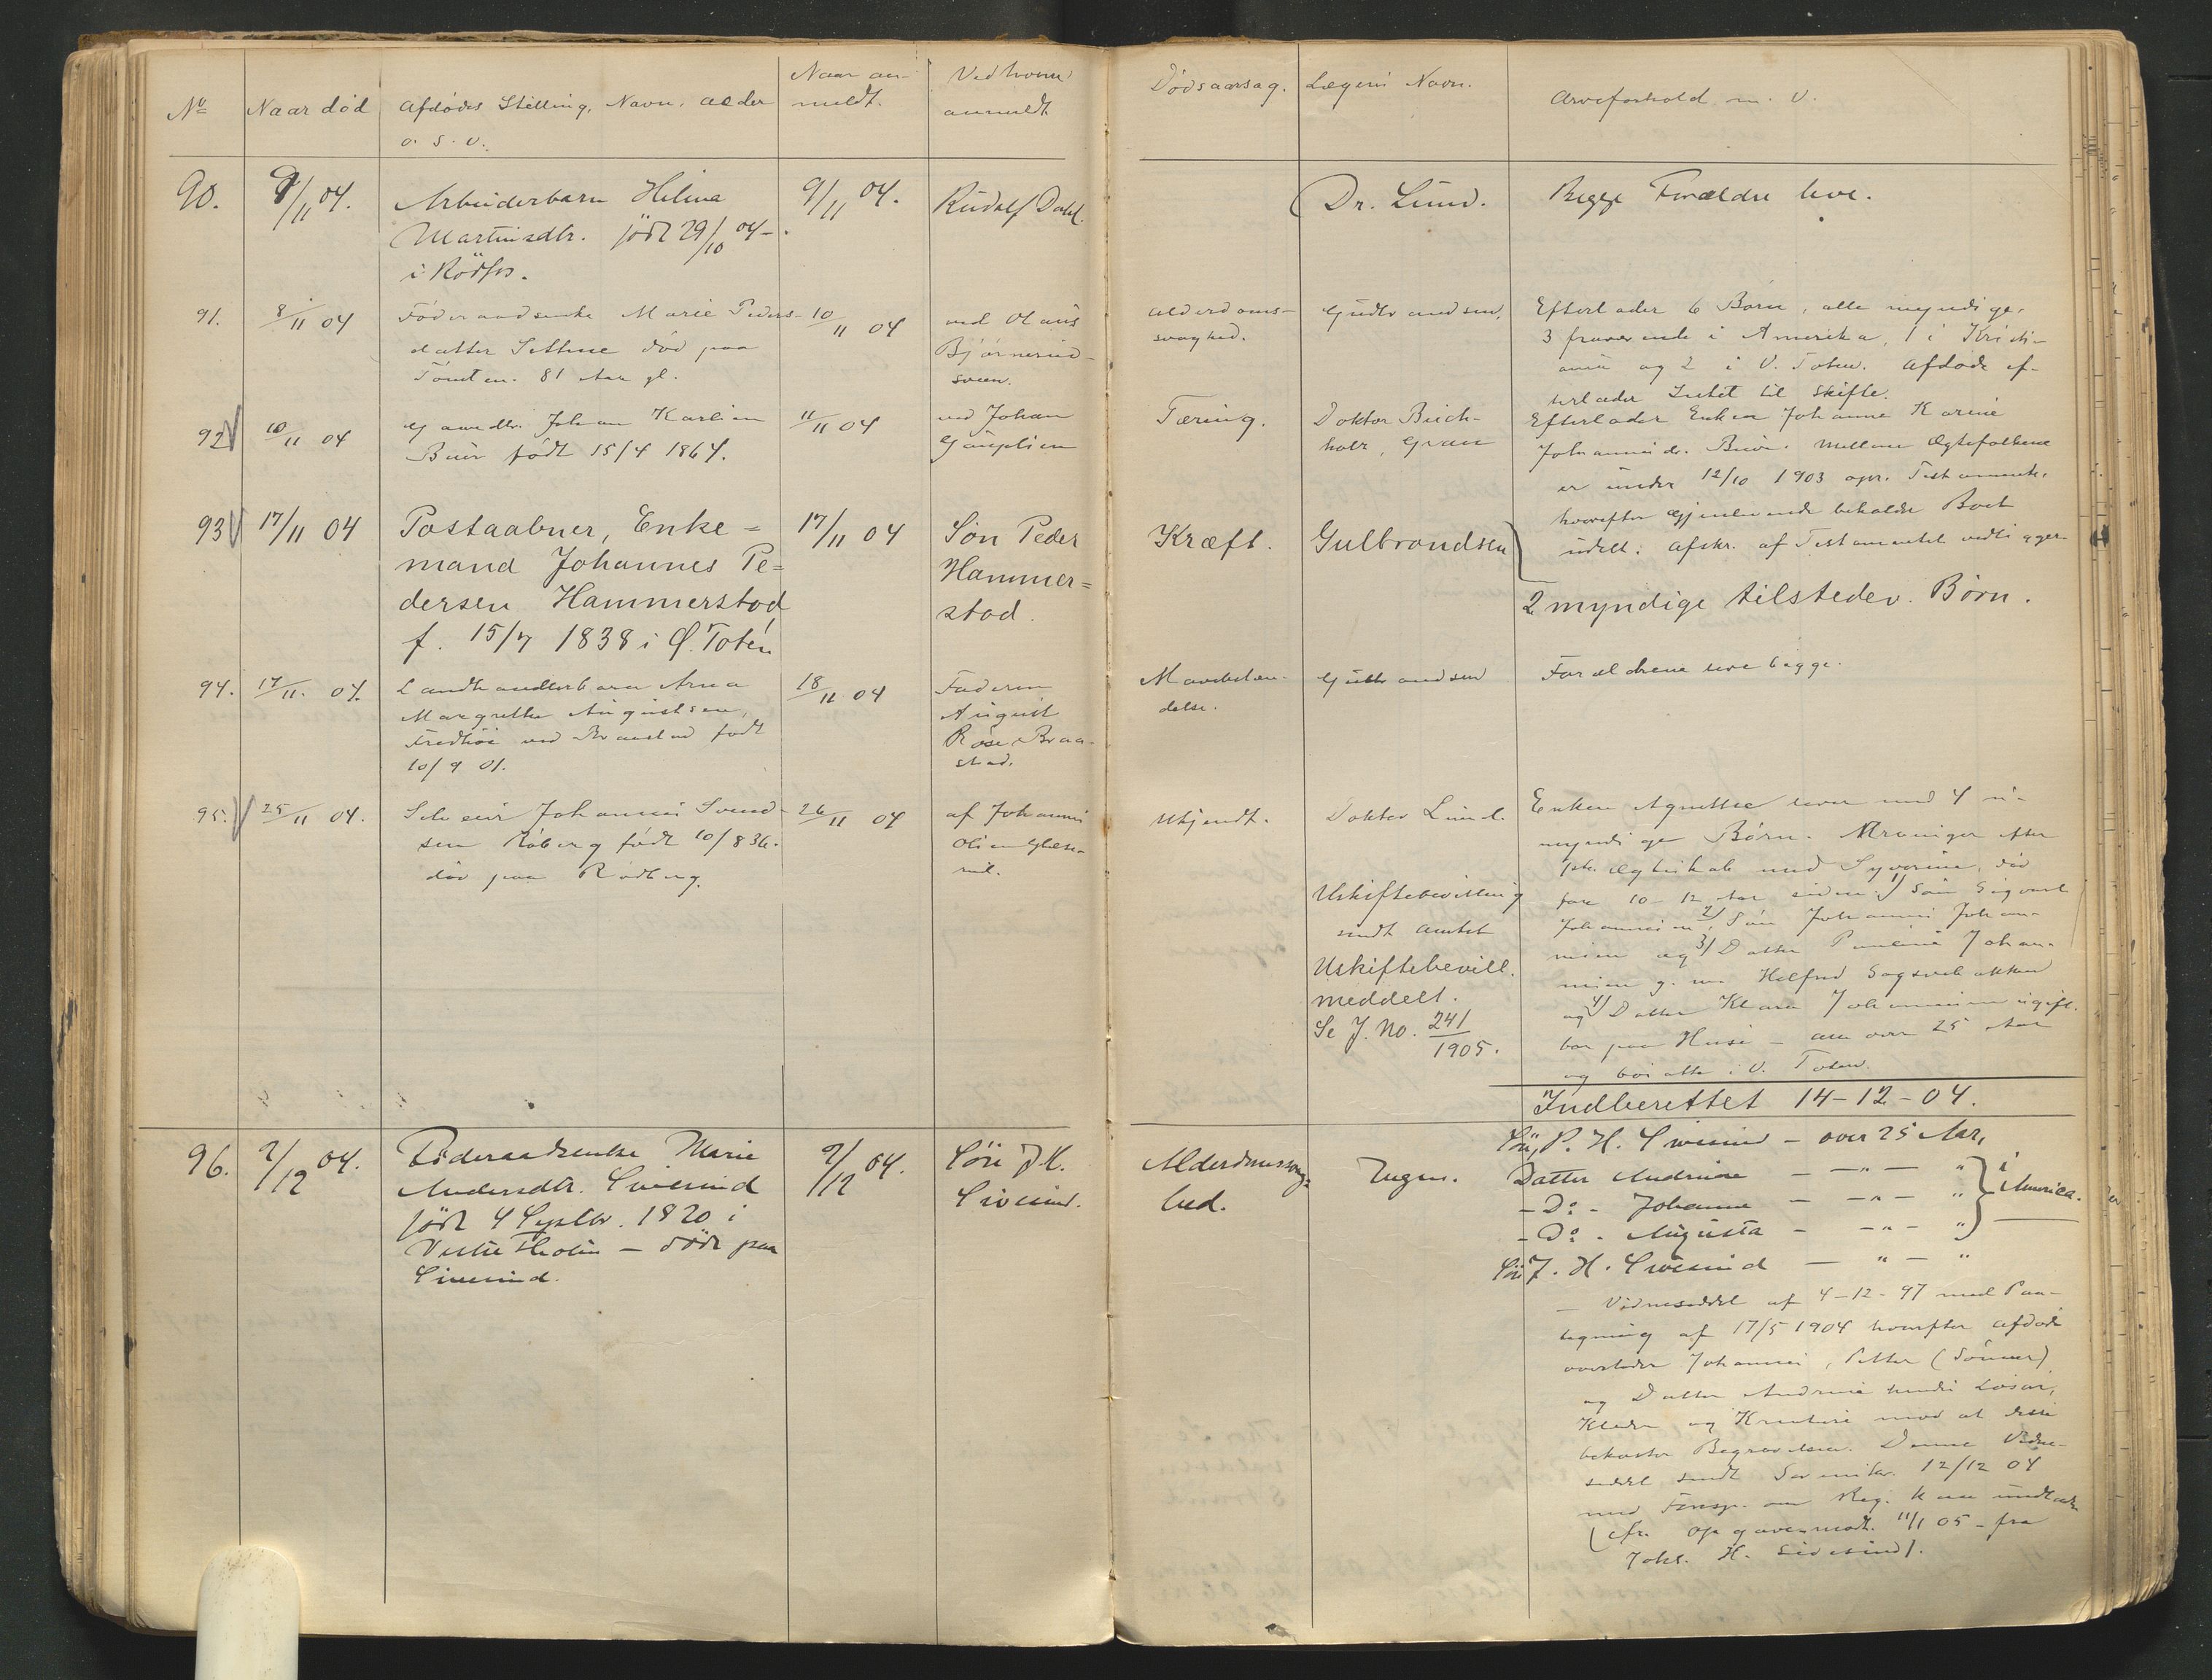 No Naar død Afdødes Stilling, Navn, Alder
o. s. v.
Naar an-
meldt.
Ved hvem
anmeldt
Dødsaarsag. Lægens Navn. Arveforhold m. V.
90. 9/11 04. Arbeiderbarn Helina
Martinsdtr. født 29/10 04 -
i Rödfos.
9/11 04.
Rudolf Dahl.
Dr. Lund. Begge Forældre leve.
91. 8/11 04 Föderaadsenke Marie Peders-
datter Sethne död paa
81 Aar gl.
10/11 04
ved Olaus
Björnerud-
sveen.
Alderdoms-
svaghed.
Gudbrandsen.
Efterlader 6 Börn, alle myndige,
3 fraværende i Amerika, 1 i Kristi-
ania og 2 i V. Toten. Afdøde ef-
terlader Intet til Skifte.
92 10/11 04 Gaardbr. Johan Karlsen
født 15/4 1864.
11/11 04
ved Johan
Gauplien
Tæring.
Doktor Buch-
holz, Gran
Efterlader Enken Johanne Karine
Johannesdr. Mellem Ægtefolkene
er under 12/10 1903 opr. Testamente,
hvorefter gjenlevende beholder Boet
udelt. Afskr. af Testamentet vedligger
93 17/11 04 Postaabner, Enke=
mand Johannes Pe=
dersen Hammerstad
f. 15/7 1838 i Ø. Toten
17/11 04
Søn Peder
Hammer=
stad.
Kræft. Gulbrandsen
2 myndige tilstedev. Børn.
94. 17/11. 04. Landhandlerbarn Anna
Margrethe Augustsen,
Fredhöi ved Braastad født
10/9 01.
18/11 04
Faderen
August
Rose, Braa-
stad.
Mavebetæn-
delse.
Gulbrandsen
Forældrene leve begge.
95. 25/11 04. Johannes Svend-
sen Röberg født 10/8 36.
död paa Rödberg.
26/11 04
af Johannes
Olsen
rud.
Ukjendt. Doktor Lund.
Uskiftebevilling
sendt Amtet
Uskiftebevill.
meddelt.
Se J. No. 241/1905.
Enken Agnethe lever med 4 u-
myndige Børn. Arvinger efter
Ægteskab med Syverine, död
for 10-12 Aar siden: 1) Sön Sigvart
Johannesen, 2) Sön Johannes Johan-
nesen og 3) Datter Pauline Johan-
nesen g. m. Helfred Sogsvebakken
og 4) Datter Klara Johannesen ugift.
bor paa - alle over 25 Aar
og bor alle i V. Toten.
Indberettet 14-12-04.
96. 2/12 04. Föderaadsenke Marie
Andersdtr. Sivesind
født 4 Septbr. 1820 i
Vestre Thoten - döde paa
Sivesind.
2/12 04.
Sön J. H.
Sivesind.
Alderdomssvag=
hed.
Ingen.
Sön, P. H. Sivesind - over 25 Aar,
Datter Andrine - -"- "
- Do - Johanne - -"- "
- Do - Augusta - -"- "
i America.
Sön J. H. Sivesind - " - "
- Vidneseddel af 4-12-97 med Paa-
tegning af 17/5 1904 hvorefter afdøde
overlader Johannes, Petter (Sönner)
og Datter Andrine hendes Lösöre,
Klæder og Kreaturer mod at disse
bekoster Begravelsen. Denne Vidne-
seddel sendt Sorenskr. 12/12 04
med Foresp. om Reg. kan undlades
(cfr. Opgave modt. 11/1 05 - fra
Johs. H. Sivesind).